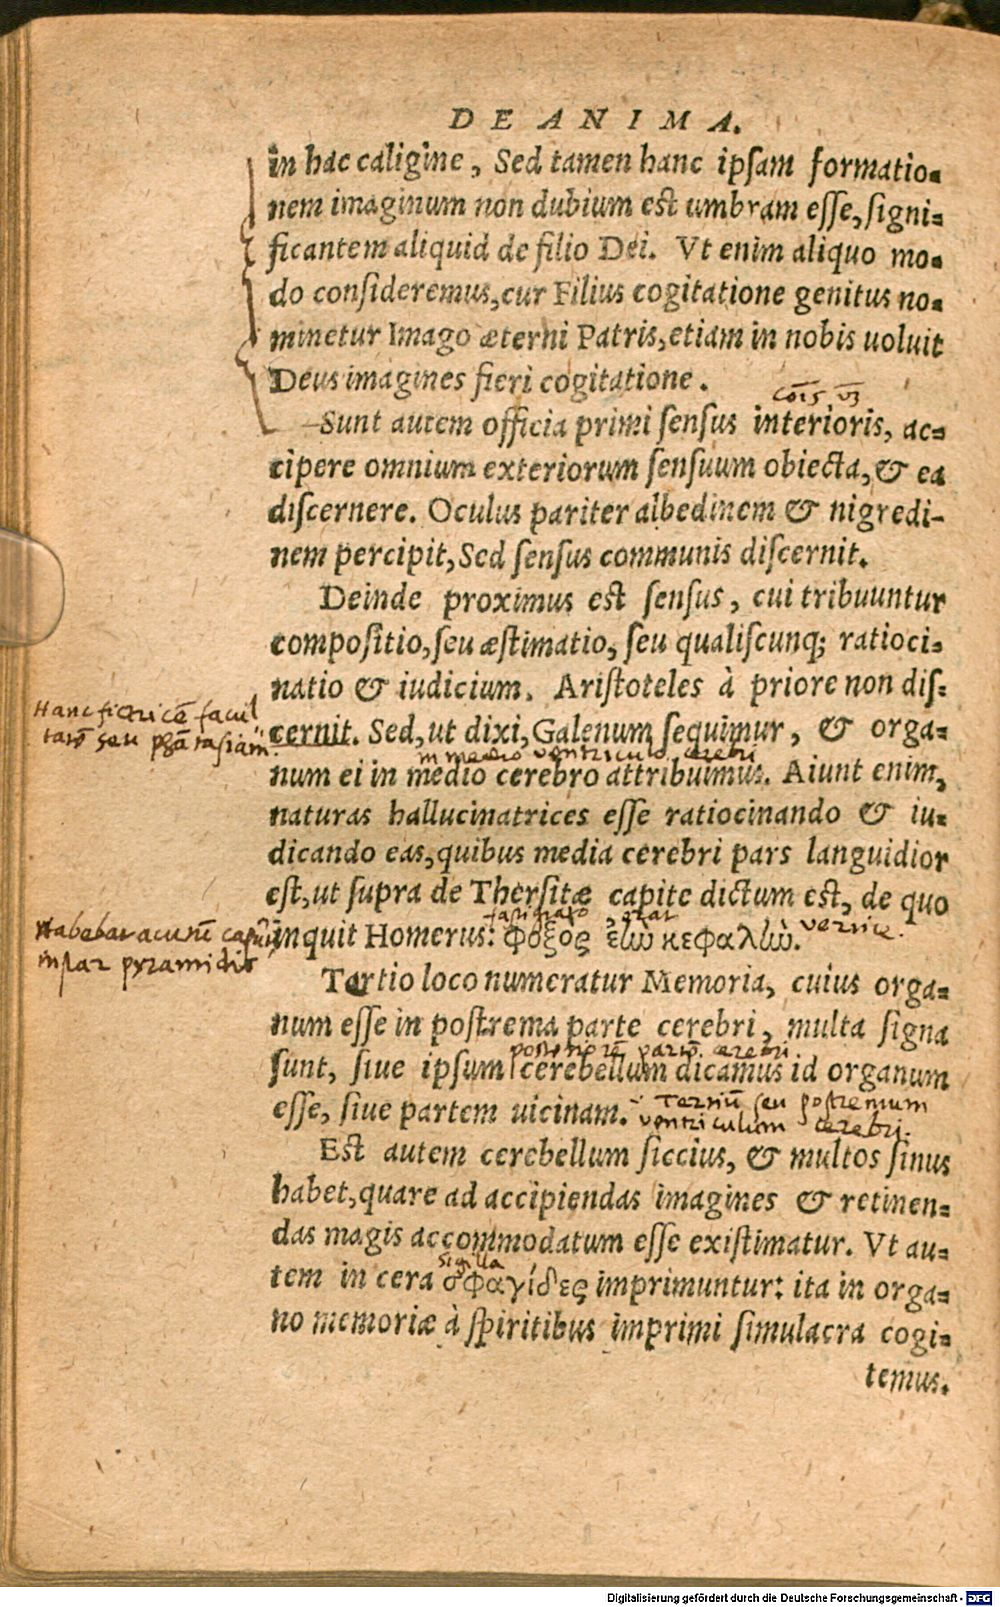 DE ANIMA.
in hac caligine, Sed tamen hanc ipsam formatio-
nem imaginum non dubium est umbram esse, signi-
ficantem aliquid de filio Dei. Vt enim aliquo mo-
do consideremus, cur Filius cogitatione genitus no-
minetur Imago æterni Patris, etiam in nobis uoluit
Deus imagines fieri cogitatione.
Sunt autem officia primi sensus interioris, ac-
cipere omnium exteriorum sensuum obiecta, & ea
discernere. Oculus pariter albedinem & nigredi-
nem percipit, Sed sensus communis discernit.
Deinde proximus est sensus, cui tribuuntur
compositio, seu æstimatio, seu qualiscunq; ratioci-
natio & iudicium. Aristoteles à priore non dis-
Hanc fictricē facul
cernit. Sed, ut dixi, Galenum sequimur, & orga-
tatē seu phātasiam.
in medio ventriculo cerebri
num ei in medio cerebro attribuimus. Aiunt enim,
naturas hallucinatrices esse ratiocinando & iu-
dicando eas, quibus media cerebri pars languidior
est, ut supra de Thersitæ capite dictum est, de quo
fastigiato erat vertice.
Habebat acutū caput
inquit Homerus: φοξος ἐὼ κεφαλὼ.
instar pyramidis
Tertio loco numeratur Memoria, cuius orga-
num esse in postrema parte cerebri, multa signa
posteriorē partē cerebri
sunt, siue ipsum cerebellum dicamus id organum
esse, siue partem uicinam. Tertiū seu postremum
ventriculum cerebri.
Est autem cerebellum siccius, & multos sinus
habet, quare ad accipiendas imagines & retinen-
das magis accommodatum esse existimatur. Vt au-
sigilla
tem in cera σφαγίδες imprimuntur: ita in orga-
no memoriæ à spiritibus imprimi simulacra cogi-
temus.
Digitalisierung gefördert durch die Deutsche Forschungsgemeinschaft - DFG